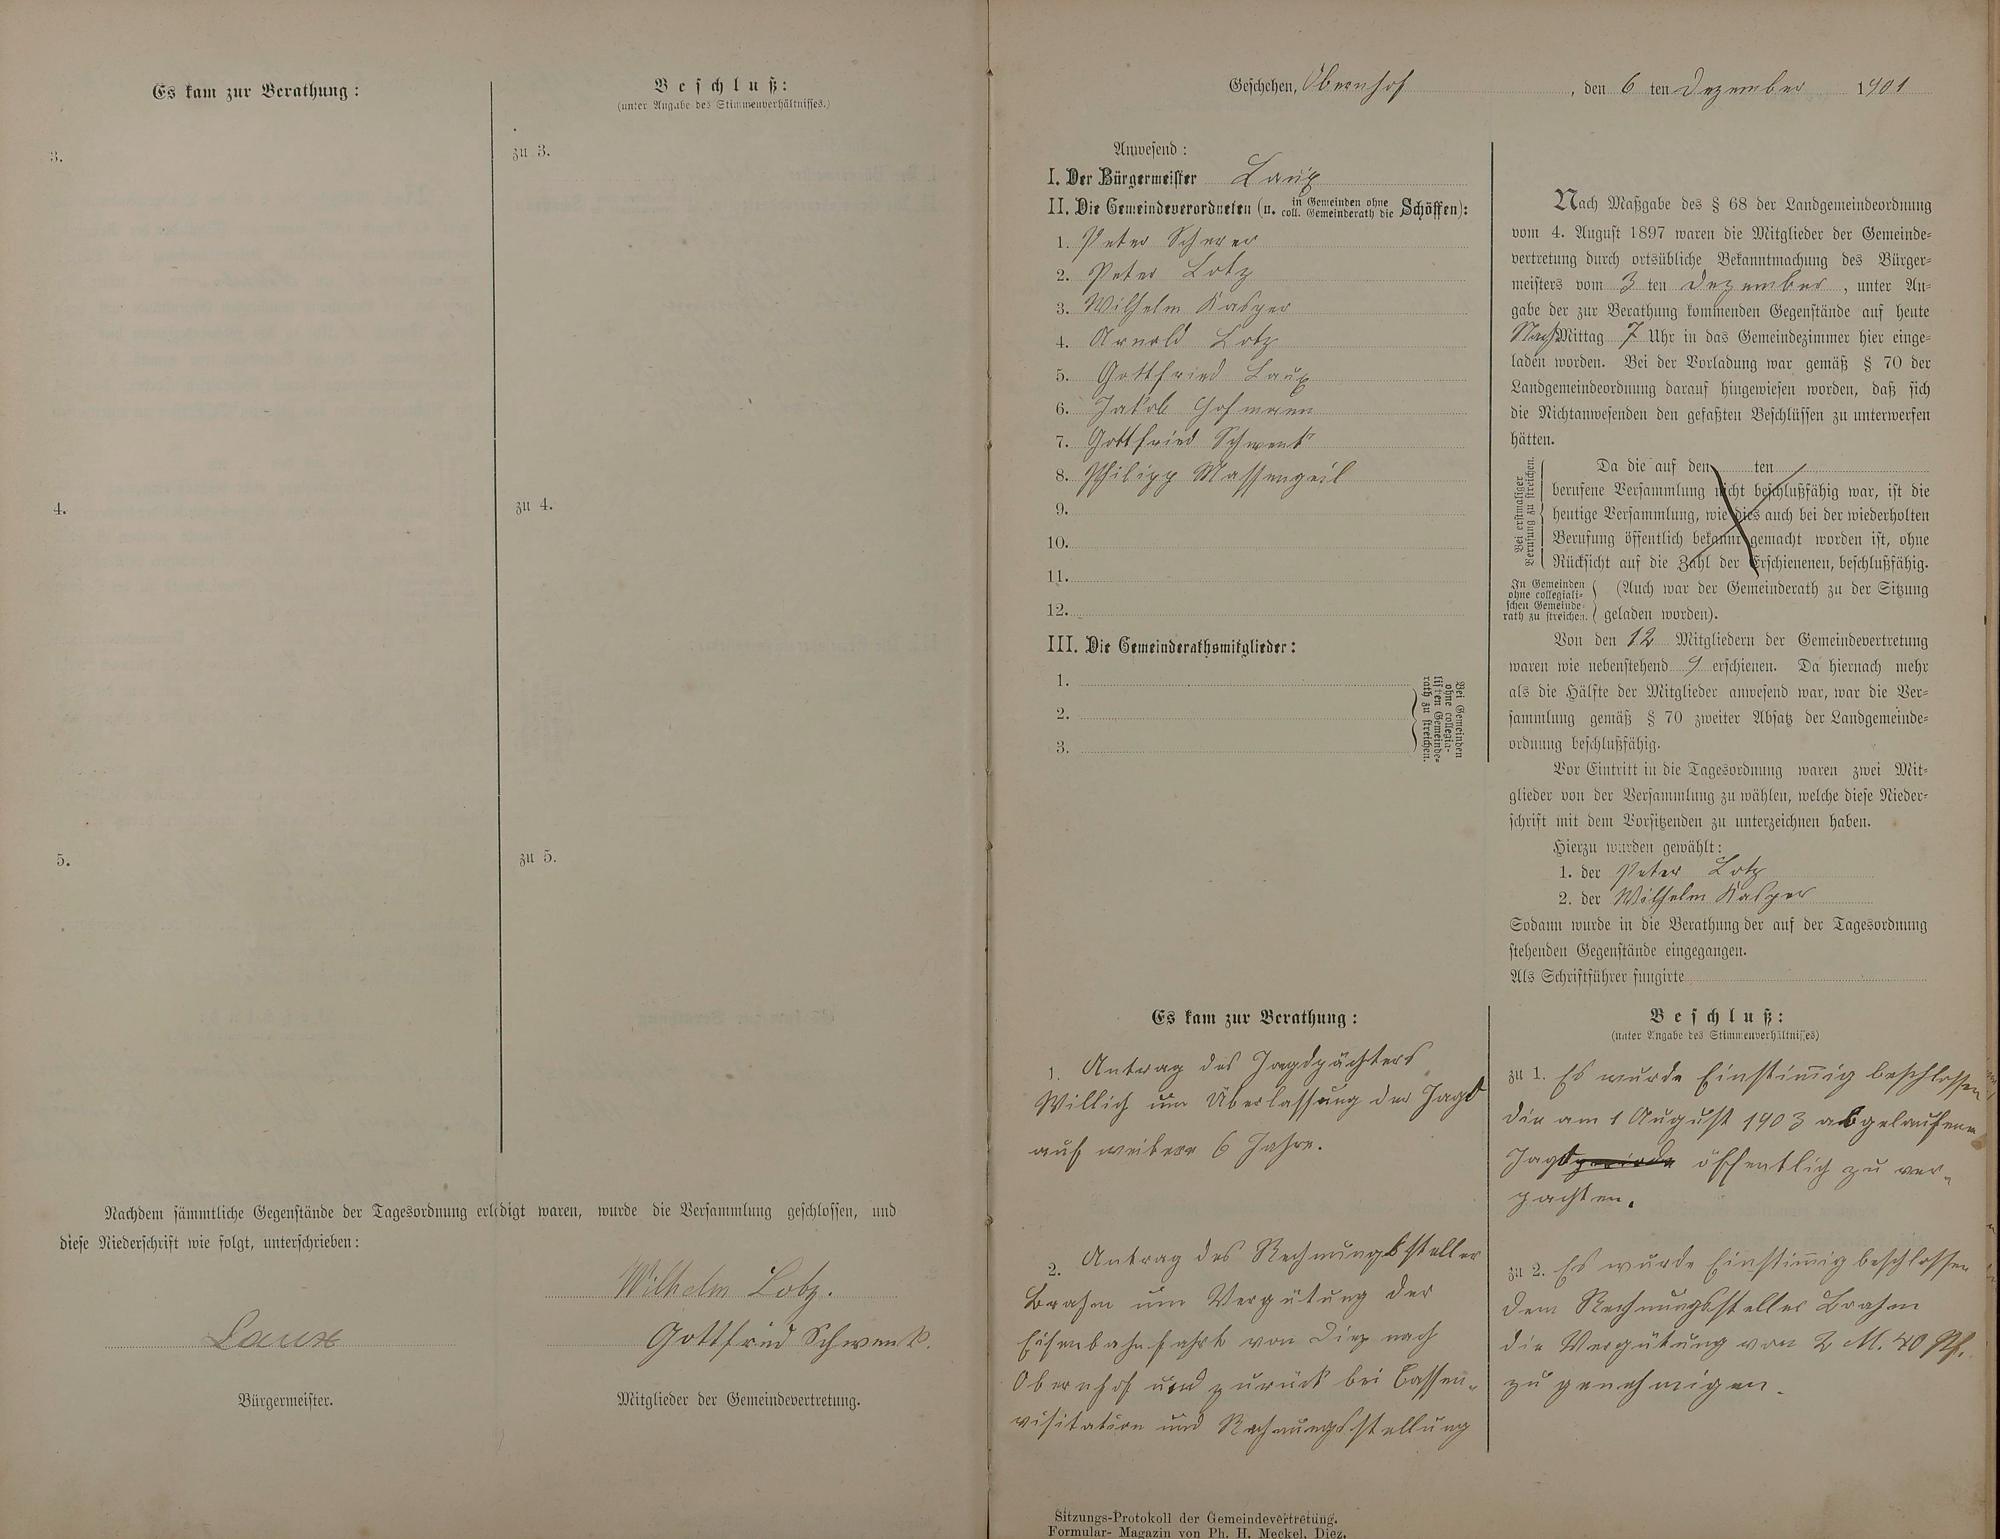 Es kam zur Berathung:
Beschluß:
(unter Angabe des Stimmenverhältnisses.)
3.
zu 3.
4.
zu 4.
5.
zu 5.
Nachdem sämmtliche Gegenstände der Tagesordnung erledigt waren, wurde die Versammlung geschlossen, und
diese Niederschrift wie folgt, unterschrieben:
Wilhelm Lotz.
Laux
Gottfried Schwenk.
Bürgermeister.
Mitglieder der Gemeindevertretung.
Geschehen, Obernhof, den 6 ten Dezember 1901
Anwesend:
I. Der Bürgermeister Laux
II. Die Gemeindeverordneten (u. in Gemeinden ohne coll. Gemeinderath die Schöffen):
1. Peter Scherer
2. Peter Lotz
3. Wilhelm Kasper
4. Arnold Lotz
5. Gottfried Laux
6. Jakob Hofmann
7. Gottfried Schwenk
8. Philipp Massengeil
9.
10.
11.
12.
III. Die Gemeinderathsmitglieder:
1.
2.
3.
Bei Gemeinden
ohne collegia-
lischen Gemeinde-
rath zu streichen.
Nach Maßgabe des § 68 der Landgemeindeordnung
vom 4. August 1897 waren die Mitglieder der Gemeinde-
vertretung durch ortsübliche Bekanntmachung des Bürger-
meisters vom 3 ten Dezember, unter An-
gabe der zur Berathung kommenden Gegenstände auf heute
NachMittag 7 Uhr in das Gemeindezimmer hier einge-
laden worden. Bei der Vorladung war gemäß § 70 der
Landgemeindeordnung darauf hingewiesen worden, daß sich
die Nichtanwesenden den gefaßten Beschlüssen zu unterwerfen
hätten.
Bei erstmaliger
Berufung zu streichen.
Da die auf den ten
berufene Versammlung nicht beschlußfähig war, ist die
heutige Versammlung, wie dies auch bei der wiederholten
Berufung öffentlich bekannt gemacht worden ist, ohne
Rücksicht auf die Zahl der Erschienenen, beschlußfähig.
In Gemeinden
ohne collegiali-
schen Gemeinde-
rath zu streichen.
(Auch war der Gemeinderath zu der Sitzung
geladen worden).
Von den 12 Mitgliedern der Gemeindevertretung
waren wie nebenstehend 9 erschienen. Da hiernach mehr
als die Hälfte der Mitglieder anwesend war, war die Ver-
sammlung gemäß § 70 zweiter Absatz der Landgemeinde-
ordnung beschlußfähig.
Vor Eintritt in die Tagesordnung waren zwei Mit-
glieder von der Versammlung zu wählen, welche diese Nieder-
schrift mit dem Vorsitzenden zu unterzeichnen haben.
Hierzu wurden gewählt:
1. der Peter Lotz
2. der Wilhelm Kasper
Sodann wurde in die Berathung der auf der Tagesordnung
stehenden Gegenstände eingegangen.
Als Schriftführer fungirte
Es kam zur Berathung:
1. Antrag des Jagdpächters
Willich um Überlassung der Jagd
auf weitere 6 Jahre.
2. Antrag des Rechnungssteller
Brahm um Vergütung der
Eisenbahnfahrt von Diez nach
Obernhof und zurück bei Cassen-
visitation und Rechnungsstellung
Beschluß:
(unter Angabe des Stimmenverhältnisses)
zu 1. Es wurde Einstimig beschlossen
die am 1 August 1903 abgelaufene
Jagdperiode öffentlich zu ver-
pachten.
zu 2. Es wurde Einstimig beschlossen
dem Rechnungssteller Brahm
die Vergütung von 2 M. 40 Pf.
zu genehmigen.
Sitzungs-Protokoll der Gemeindevertretung.
Formular-Magazin von Ph. H. Meckel, Diez.